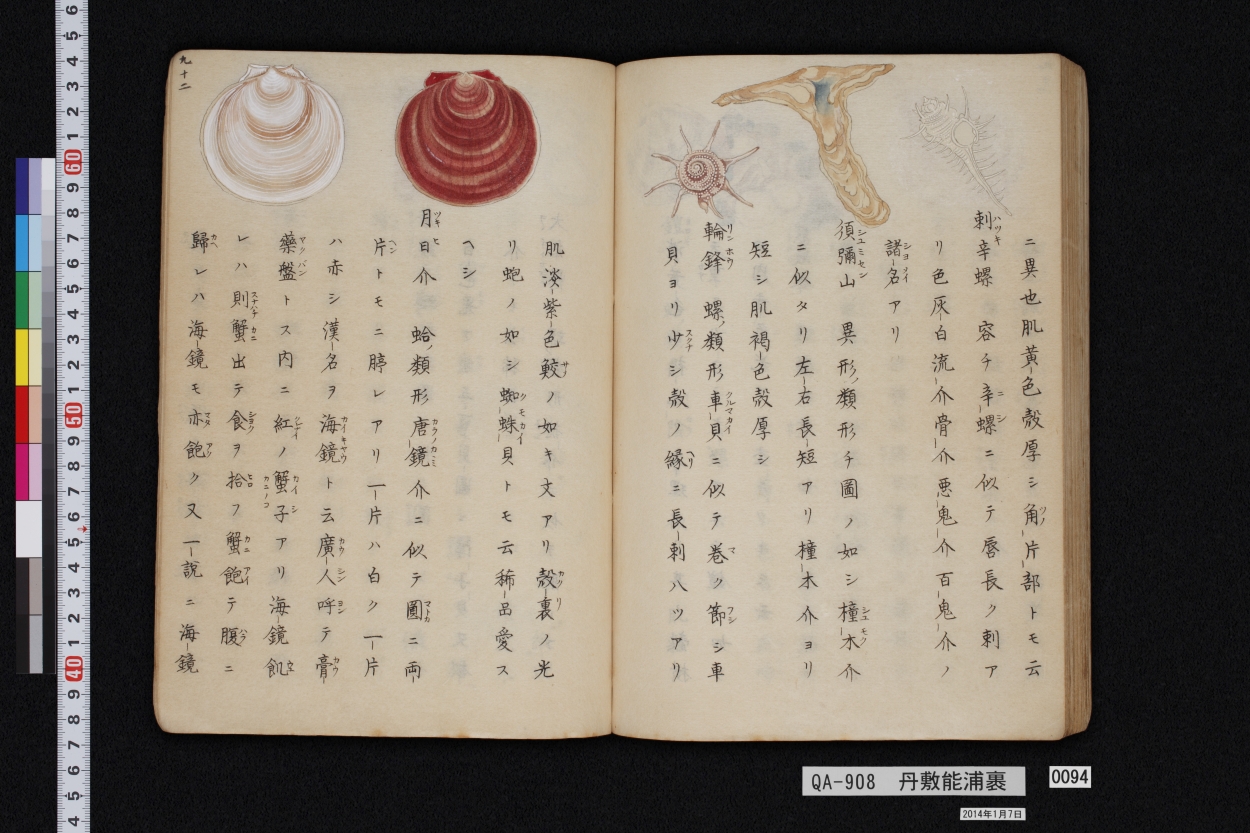 ニ異也肌黄色殻厚シ角片部トモ云
刺辛螺 容チ辛螺ニ似テ唇長ク刺ア
リ色灰白流介骨介悪鬼介百鬼介ノ
諸名アリ
須彌山 異形ノ類形チ圖ノ如シ橦木介
ニ似タリ左右長短アリ橦木介ヨリ
短シ肌褐色殻厚シ
輪鋒 螺ノ類形車貝ニ似テ巻ク節シ車
貝ヨリ少シ殻ノ縁ニ長刺八ツアリ
肌淡紫色鮫ノ如キ文アリ殻裏ノ光
リ蚫ノ如シ蜘蛛貝トモ云稀品愛ス
ヘシ
月日介 蛤ノ類形唐鏡介ニ似テ圓ニ両
片トモニ脖レアリ一片ハ白ク一片
ハ赤シ漢名ヲ海鏡ト云廣人呼テ膏
藥盤トス内ニ紅ノ蟹子アリ海鏡飢
レハ則蟹出テ食ヲ拾フ蟹飽テ腹ニ
歸レハ海鏡モ亦飽ク又一説ニ海鏡
九十二
QA-908 丹敷能浦裹
0094
2014年1月7日